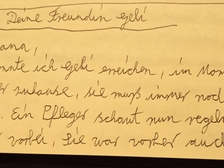 Deine Freundin Gebi
ana,
nnte ich Gebi erreichen, im Mom
er zuhause, sie muß immer noch
. Ein Pfleger schaut nun regelm
vorbei, Sie war vorher auch